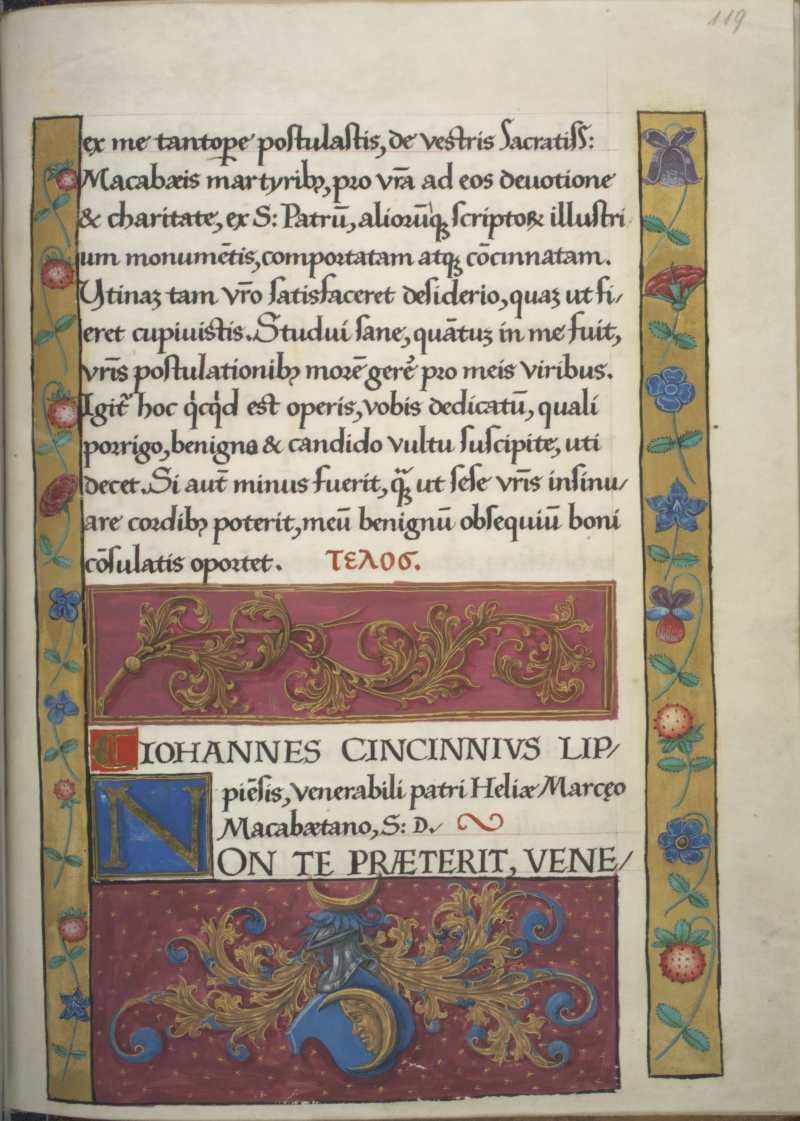 119
ex me tantop̱e postulastis, de vestris Sacratiss:
Macabæis martyribꝫ, pro vr̄a ad eos deuotione
& charitate, ex S: Patrū, aliorūqꝫ scriptoꝝ illustri
um monumētis, comportatam atqꝫ cōcinnatam.
Vtinaꝫ tam vr̄o satisfaceret desiderio, quaꝫ ut fi/
eret cupiuistis. Studui sane, quātuꝫ in me fuit,
vr̄is postulationibꝫ morē gerē pro meis viribus.
Igit̄ hoc q̇cq̇d est operis, vobis dedicatū, quali
porrigo, benigno & candido vultu suscipite, uti
decet. Si aut̄ minus fuerit, qꝫ̄ ut sese vr̄is insinu/
are cordibꝫ poterit, meū benignū obsequiū boni
cōsulatis oportet. ΤΕΛΟΣ.
IOHANNES CINCINNIVS LIP/
piēsis, venerabili patri Heliæ Marcęo
Macabætano, S: D.
NON TE PRÆTERIT, VENE/